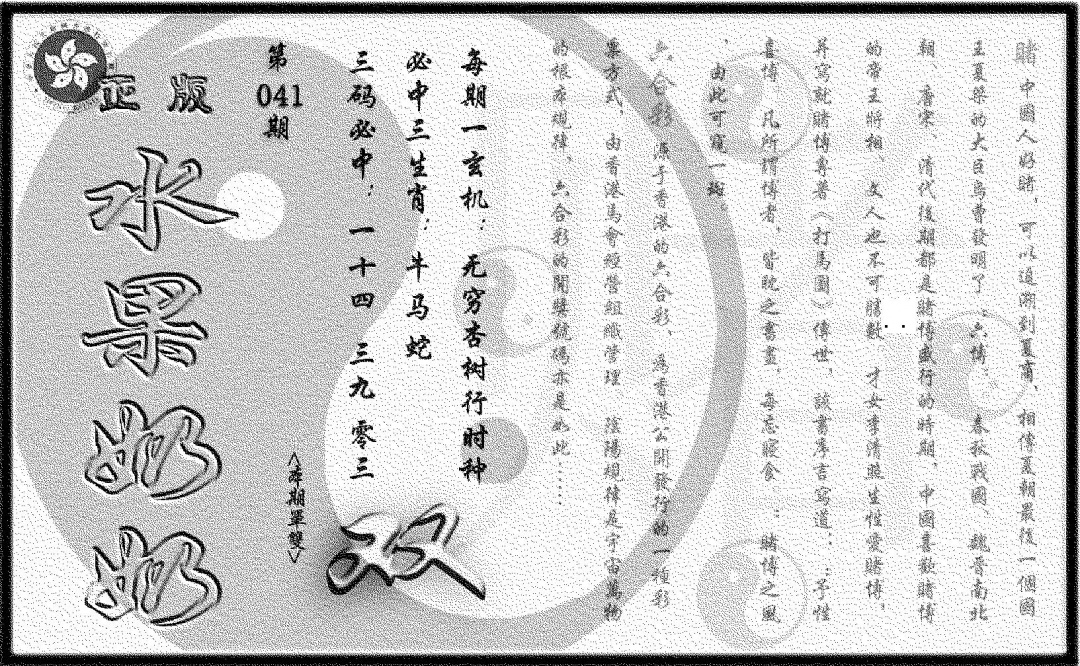 賭 中國人好賭，可以追溯到夏商，相傳夏朝最後一個國
王夏桀的大臣烏曹發明了“六博”。春秋戰國、魏晉南北
朝、唐宋、清代後期都是賭博盛行的時期，中國喜歡賭博
的帝王將相、文人也不可勝數，才女李清照生性愛賭博，
并寫就賭博專著《打馬圖》傳世，該書序言寫道：“予性
喜博，凡所謂博者，皆耽之晝晝，每忘寢食”；賭博之風
，由此可窺一斑。
六合彩 源于香港的六合彩，為香港公開發行的一種彩
票方式，由香港馬會經營組織管理。陰陽規律是宇宙萬物
的根本規律，六合彩的開獎號碼亦是如此……
每期一玄机：无穷杏树行时种
必中三生肖：牛马蛇
三码必中：一十四 三九 零三
第041期
<本期單雙>
双
正版
水果奶奶